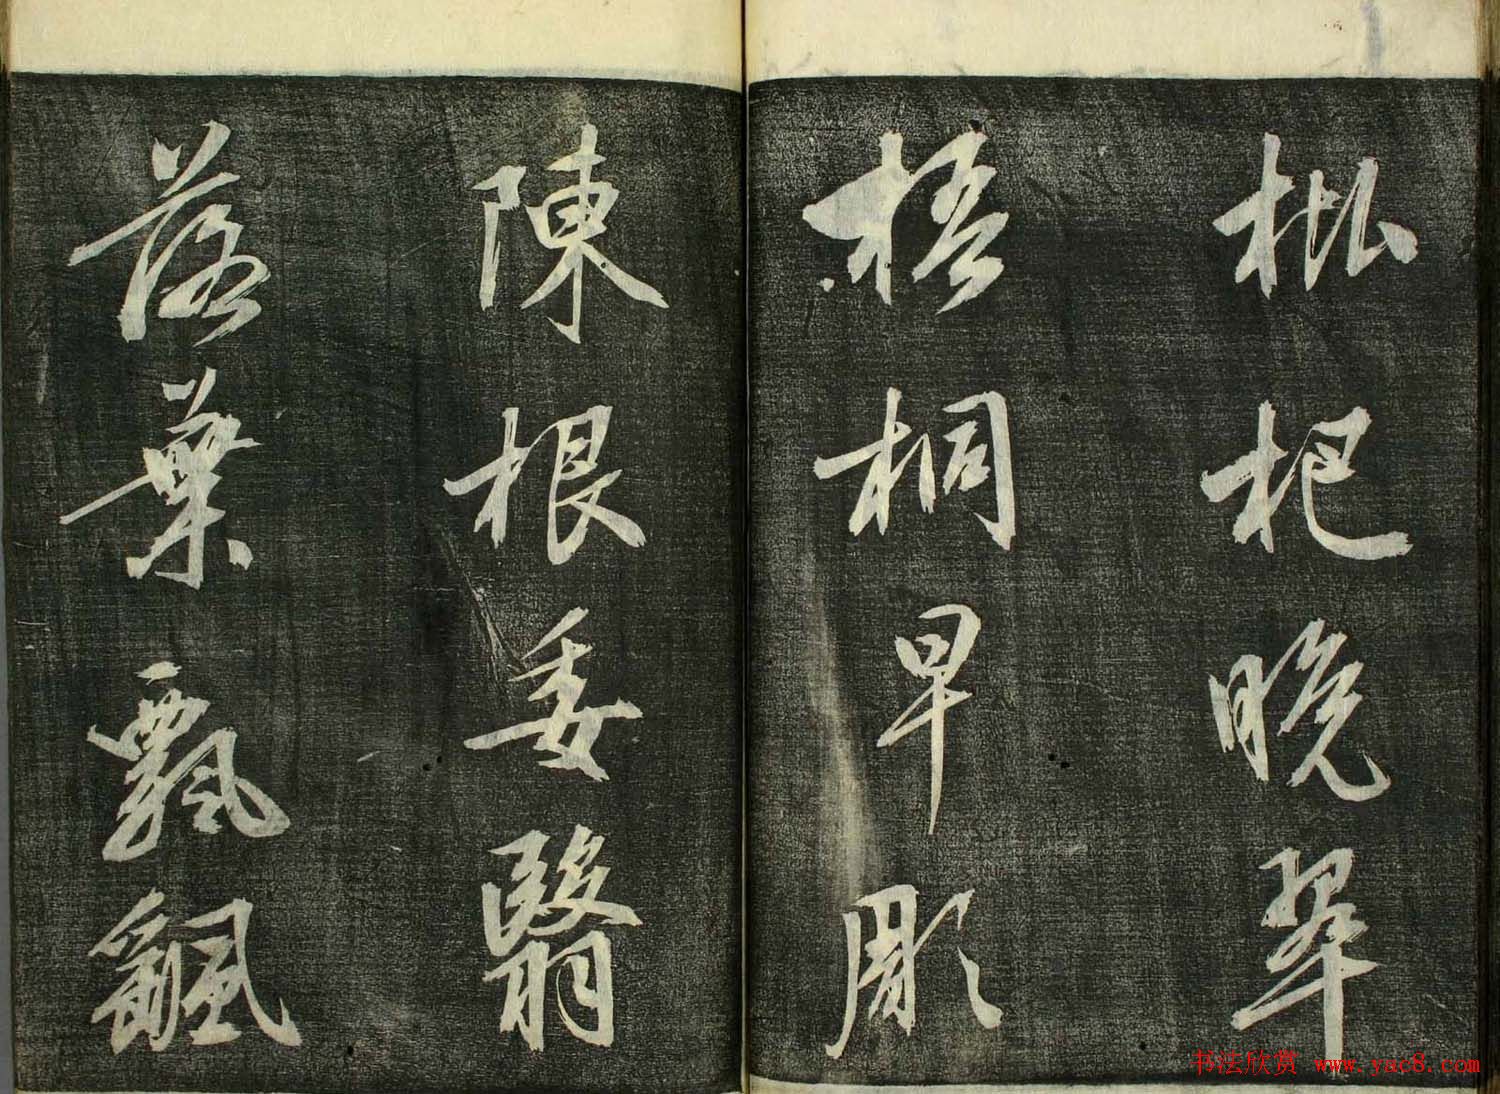 枇杷晚翠
梧桐早彫
陳根委翳
落葉飄飖
书法欣赏 www.yac8.com